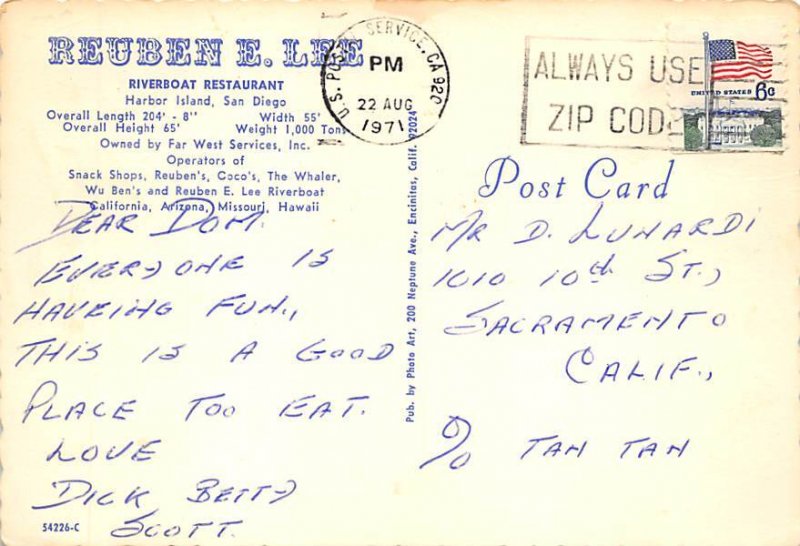 REUBEN E. LEE
RIVERBOAT RESTAURANT
Harbor Island, San Diego
Overall Length 204' - 8" Width 55'
Overall Height 65' Weight 1,000 Tons
Owned by Far West Services, Inc.
Operators of
Snack Shops, Reuben's, Coco's, The Whaler,
Wu Ben's and Reuben E. Lee Riverboat
California, Arizona, Missouri, Hawaii
DEAR DOM.
EVERYONE IS
HAVEING FUN.,
THIS IS A GOOD
PLACE TOO EAT.
LOVE
DICK BETTY
SCOTT.
54226-C
Pub. by Photo Art, 200 Neptune Ave., Encinitas, Calif. 92024
U.S. POSTAL SERVICE, CA 920
PM
22 AUG
1971
ALWAYS USE
ZIP CODE
UNITED STATES 6c
Post Card
MR D. LUNARDI
1010 10th ST.,
SACRAMENTO
CALIF.,
C/O TAM TAM